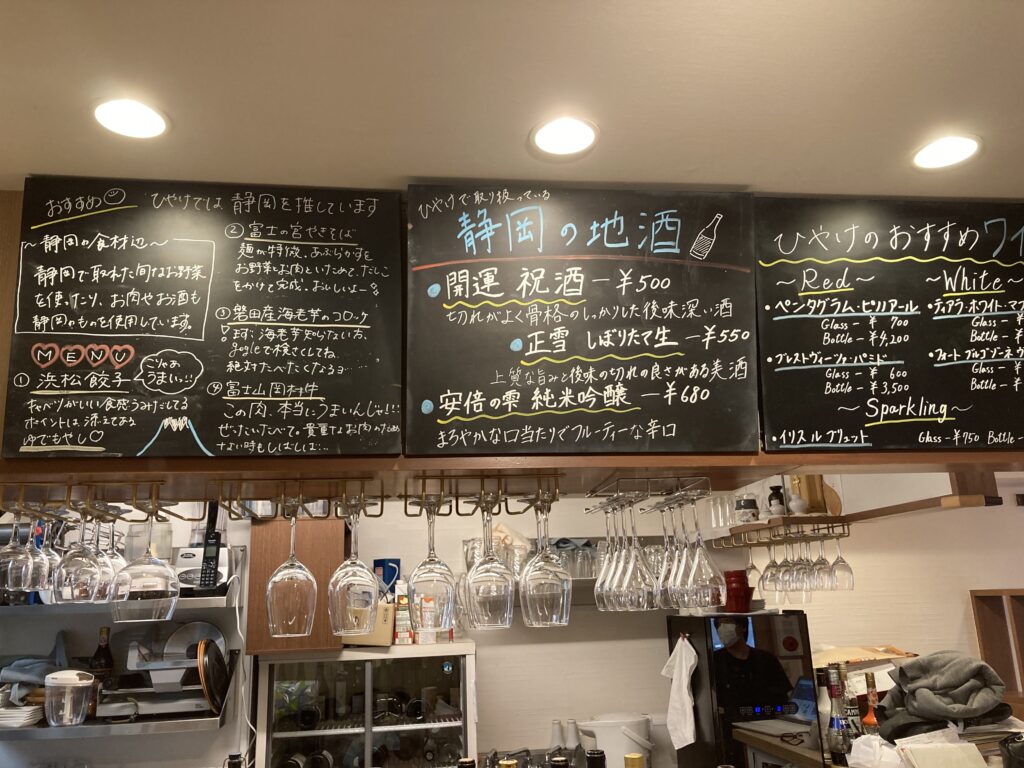 おすすめ
ひやけでは 静岡を推しています
～静岡の食材達～
静岡で取れた旬なお野菜
を使ったり、お肉やお酒も
静岡のものを使用しています。
MENU
① 浜松餃子
こりゃぁ
うまい!!!
キャベツがいい食感うみだしてる
ポイントは添えてある
ゆでもやし♡
② 富士の宮やきそば
麺が特徴、あぶらかすを
お野菜とお肉といためて、だしこ
をかけて完成、おいしいよー
③ 磐田産海老芋のコロッケ
まず、海老芋知らない方、
googleで検さくしてね。
絶対たべたくなるヨ
④ 富士山岡村牛
この肉、本当にうまいんじゃ!!!
ぜったいたべて。貴重なお肉のため
ない時もしばしば…
ひやけで取り扱っている
静岡の地酒
開運 祝酒 ー ¥500
切れがよく骨格のしっかりした後味深い酒
正雪 しぼりたて生 ー ¥550
上質な旨みと後味の切れの良さがある美酒
安倍の雫 純米吟醸 ー ¥680
まろやかな口当たりでフルーティーな辛口
ひやけのおすすめワイ
～Red～
・ペンタグラム・ピリアール
Glass - ¥ 700
Bottle - ¥4,200
・ブレストヴィーツァ・パミド
Glass - ¥ 600
Bottle - ¥3,500
～White～
・ティアラ・ホワイト・マ
Glass - ¥
Bottle - ¥
Glass - ¥
Bottle - ¥
～Sparkling～
・イリスルブリュット
Glass - ¥750 Bottle -